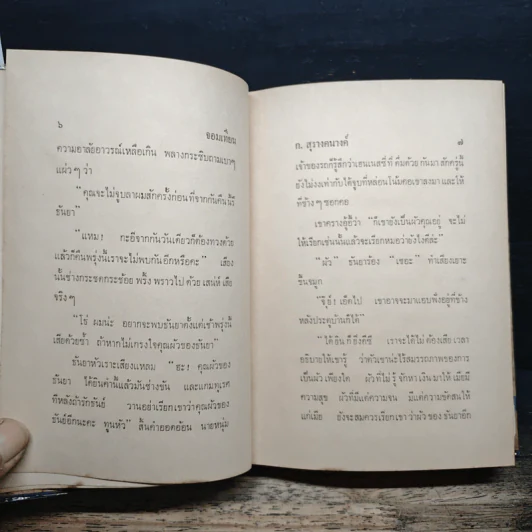 ๖ จอมเทียน
ความอาลัยอาวรณ์เหลือเกิน พลางกระซิบถามเบาๆ
แผ่วๆ ว่า
"คุณจะไม่จูบลาผมสักครั้งก่อนที่จากกันคืนนี้รึ
ธันยา"
"แหม! กะอีจากกันวันเดียวก็ต้องทวงด้วย
แล้วก็คืนพรุ่งนี้เราจะไม่พบกันอีกหรือคะ" เสียง
นั้นช่างกระชดกระช้อย พริ้งพราวไปด้วยเสน่ห์เสีย
จริงๆ
"ใช่ ผมน่ะ อยากจะพบธันยาตั้งแต่เช้าพรุ่งนี้
เสียด้วยซ้ำ ถ้าหากไม่เกรงใจคุณผัวของธันยา"
ธันยาหัวเราะเสียงแหลม "อะ! คุณผัวของ
ธันยา ได้ยินคำนี้แล้วมันช่างขัน และแกมดูเรศ
ทีหลังถ้ารักธันย์ วานอย่าเรียกเขาว่าคุณผัวของ
ธันย์อีกนะคะ ทูนหัว" สิ้นคำออดอ้อน นายหนุ่ม
ก. สุรางคนางค์ ๗
เจ้าของรถก็รู้สึกว่าเฮนเนสซี่ที่ดื่มด้วยกันมาสักครู่นี้
ยังไม่งงเท่ากับได้จูบที่หล่อนโน้มคอเขาลงมา และให้
ที่ข้างๆ ซอกคอ
เขาครางอู้อี้ว่า "ก็เขายังเป็นผัวคุณอยู่ จะไม่
ให้เรียกเช่นนั้นแล้วจะเรียกหมอว่ายังไงดีล่ะ"
"ผัว" ธันยาร้อง "เชอะ" ทำเสียงเยาะ
ขึ้นจมูก
"จุ๊ย์! เอ็ดไป เขาอาจจะมาแอบฟังอยู่ที่ข้าง
หลังประตูบ้านก็ได้"
"ได้ยิน ก็ยิ่งดีซี เราจะได้ไม่ต้องเสียเวลา
อธิบายให้เขารู้ ว่าตัวเขาน่ะไร้สมรรถภาพของการ
เป็นผัวเพียงใด ผัวที่ไม่รู้จักหาเงินมาให้เมียมี
ความสุข ผัวที่มีแต่ความจน มีแต่ความขัดสนให้
แก่เมีย ยังจะสมควรเรียกเขาว่าผัวของธันยาอีก